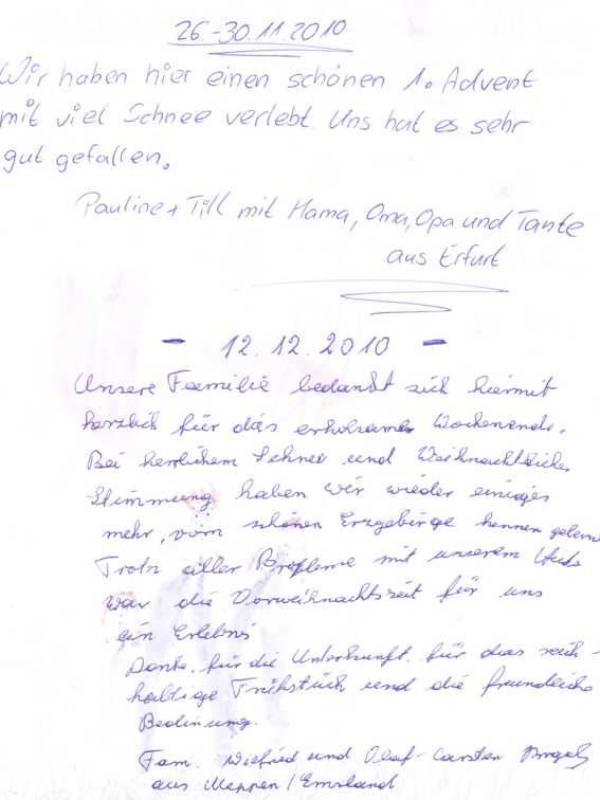 26.-30.11.2010
Wir haben hier einen schönen 1. Advent
mit viel Schnee verlebt. Uns hat es sehr
gut gefallen.
Pauline + Till mit Mama, Oma, Opa und Tante
aus Erfurt
- 12.12.2010 -
Unsere Familie bedankt sich hiermit
herzlich für das erholsame Wochenende.
Bei herrlichem Schnee und Weihnachtlicher
Stimmung haben wir wieder einiges
mehr, vom schönen Erzgebirge kennen gelernt
Trotz aller Probleme mit unserem
war die Vorweihnachtszeit für uns
ein Erlebnis
Danke für die Unterkunft, für das reich-
haltige Frühstück und die freundliche
Bedinung.
Fam. Wilfried und Olaf-Carsten
aus Meppen / Emsland